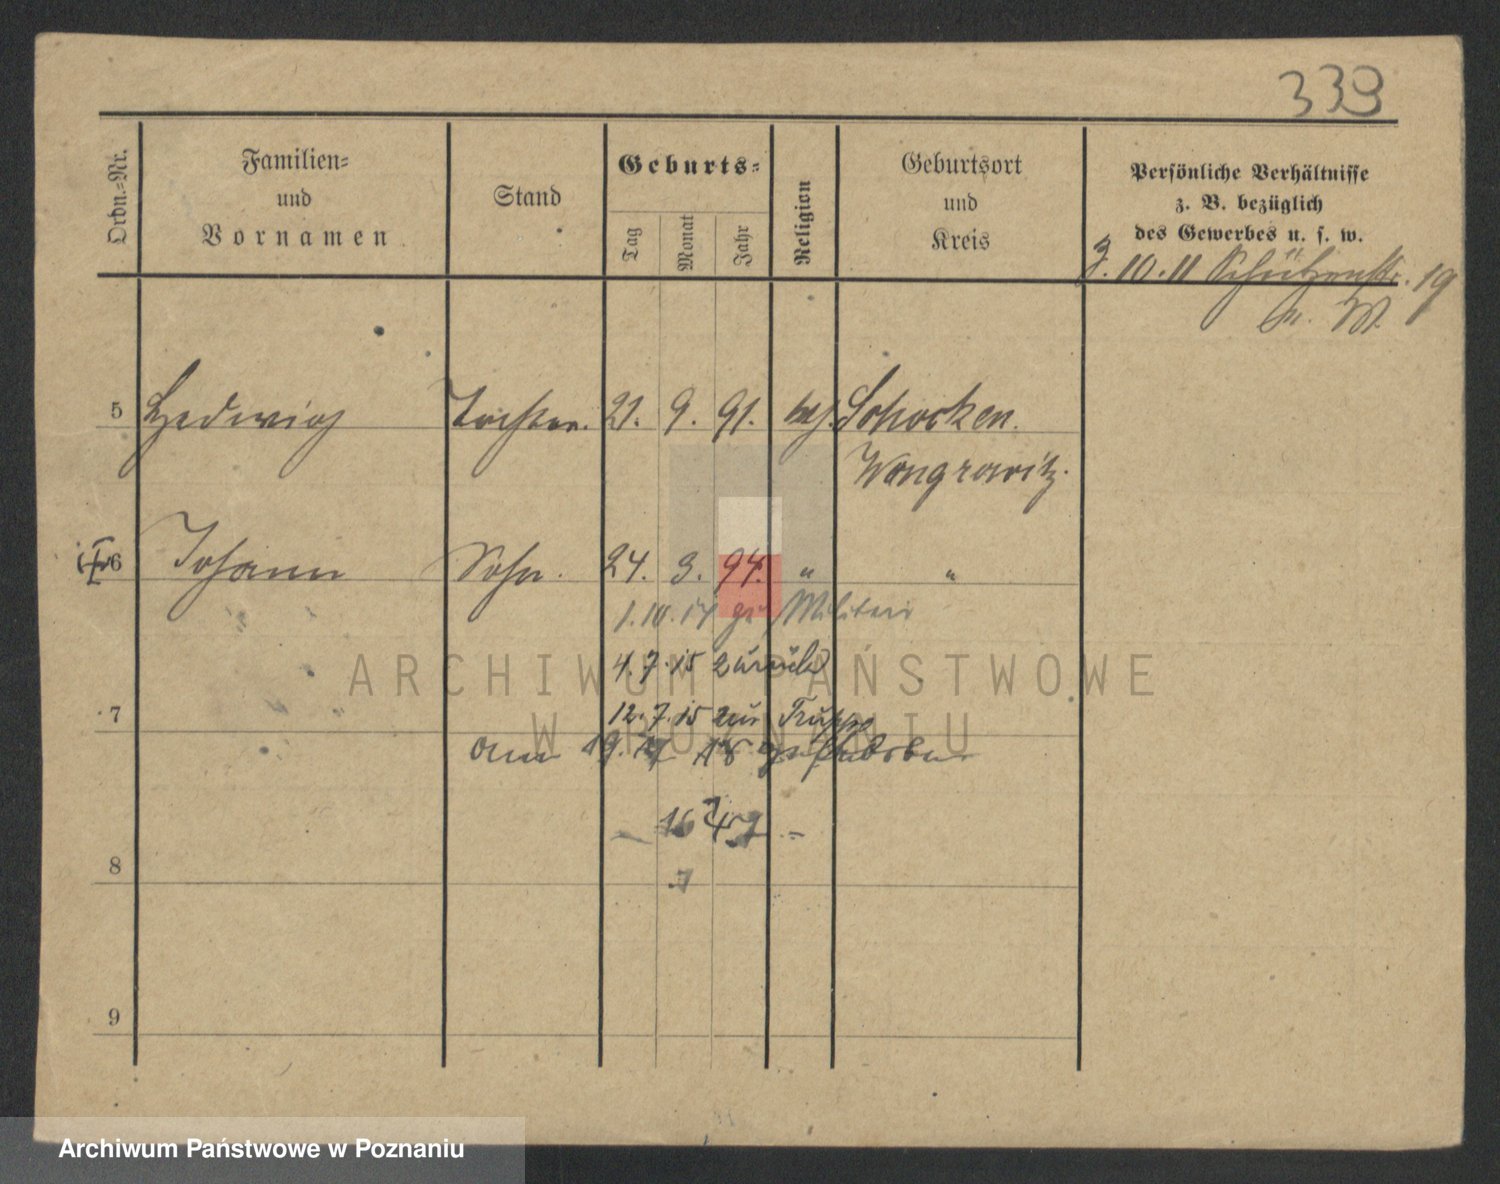 339
Ordn.=Nr.
Familien=
und
Vornamen
Stand
Geburts=
Tag
Monat
Jahr
Religion
Geburtsort
und
Kreis
Persönliche Verhältnisse
z. B. bezüglich
des Gewerbes u. s. w.
3.10.11 Schützenstr. 19
5 Hedwig Tochter. 21. 9. 91. Schocken.
Wongrowitz.
6 Johann Sohn. 24. 3. 94. " "
1.10.14 zu Militär
4.7.15 zurück
7 12.7.15 zur Truppe
am 19. 18 gestorben
16
7
8
9
ARCHIWUM PAŃSTWOWE
W POZNANIU
Archiwum Państwowe w Poznaniu